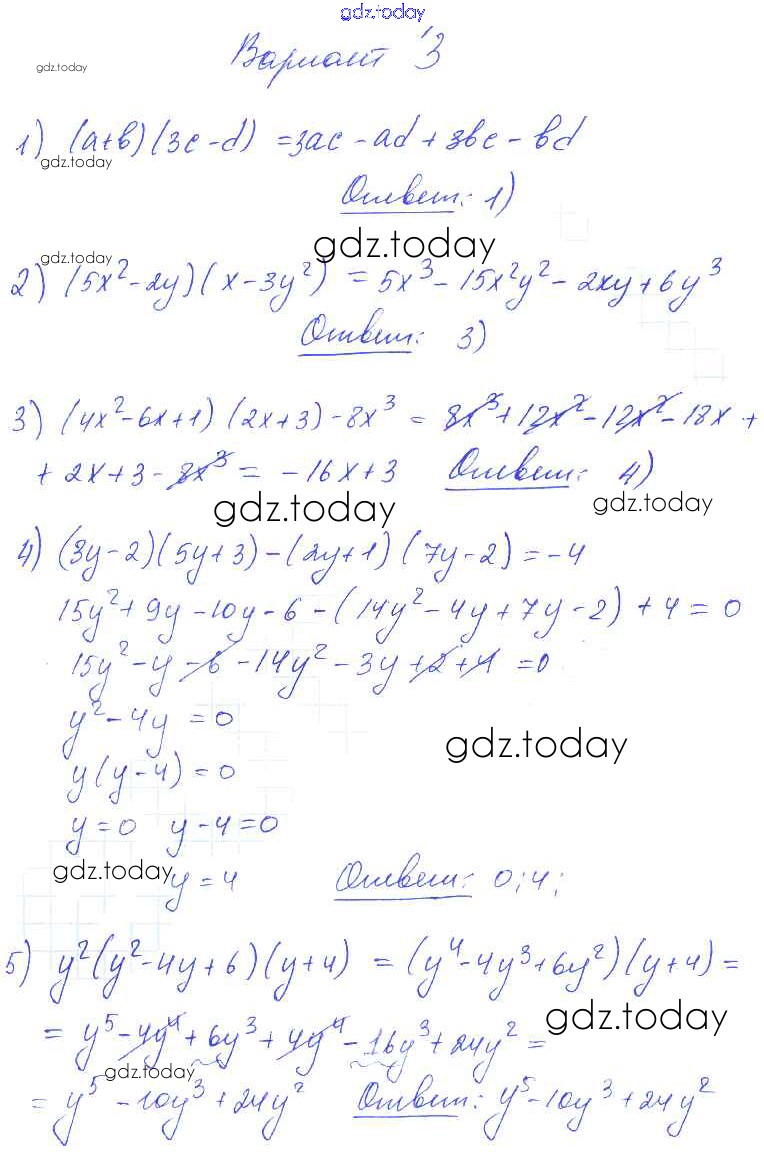 gdz.today
Вариант 3
gdz.today
1) (a+b)(3c-d) = 3ac - ad + 3bc - bd
gdz.today
Ответ: 1)
gdz.today
gdz.today
2) (5x²-2y)(x-3y²) = 5x³ - 15x²y² - 2xy + 6y³
Ответ: 3)
3) (4x²-6x+1)(2x+3)-8x³ = 8x³+12x²-12x²-18x+
+2x+3-8x³ = -16x+3 Ответ: 4)
gdz.today
gdz.today
4) (3y-2)(5y+3)-(2y+1)(7y-2)=-4
15y²+9y-10y-6-(14y²-4y+7y-2)+4=0
15y²-y-6-14y²-3y+2+4=0
y²-4y=0
gdz.today
y(y-4)=0
y=0 y-4=0
gdz.today
y=4 Ответ: 0;4;
5) y²(y²-4y+6)(y+4) = (y⁴-4y³+6y²)(y+4)=
gdz.today
= y⁵-4y⁴+6y³+4y⁴-16y³+24y²=
gdz.today
= y⁵-10y³+24y² Ответ: y⁵-10y³+24y²